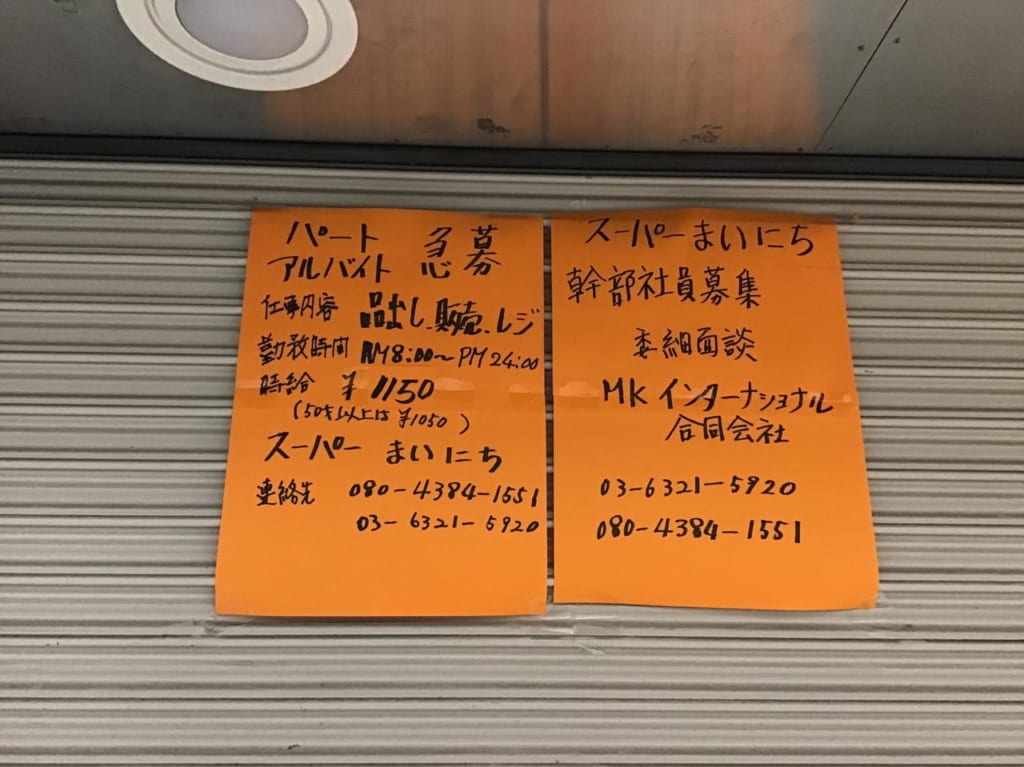 パート
アルバイト 急募
仕事内容 品出し.販売.レジ
勤務時間 AM8:00〜PM24:00
時給 ¥1150
(50才以上は¥1050)
スーパー まいにち
連絡先 080-4384-1551
03-6321-5920
スーパーまいにち
幹部社員募集
委細面談
MKインターナショナル
合同会社
03-6321-5920
080-4384-1551